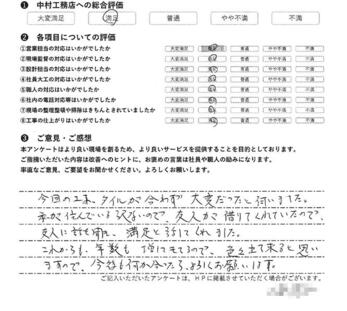 ❶ 中村工務店への総合評価
大変満足 満足 普通 やや不満 不満
❷ 各項目についての評価
①営業担当の対応はいかがでしたか 大変満足 満足 普通 やや不満 不満
②現場監督の対応はいかがでしたか 大変満足 満足 普通 やや不満 不満
③設計担当の対応はいかがでしたか 大変満足 満足 普通 やや不満 不満
④社員大工の対応はいかがでしたか 大変満足 満足 普通 やや不満 不満
⑤職人の対応はいかがでしたか 大変満足 満足 普通 やや不満 不満
⑥社内の電話対応等はいかがでしたか 大変満足 満足 普通 やや不満 不満
⑦現場の整理整頓や掃除はきちんとされていましたか 大変満足 満足 普通 やや不満 不満
⑧工事の仕上がりはいかがでしたか 大変満足 満足 普通 やや不満 不満
❸ ご意見・ご感想
本アンケートはより良い現場を創るため、より良いサービスを提供することを目的としております。
ご指摘いただいた内容は改善へのヒントに、お褒めの言葉は社員や職人の励みになります。
率直なご意見、ご要望をお聞かせください。よろしくお願いします。
今回の工事、タイルが合わず大変だったと伺いました。
私が住んでいる訳ないので、友人が借りてくれていたので、
友人に話を聞き、満足と言ってくれました。
これからも、年数も経ってくるので、色々出て来ると思い
ますので、今後も何かあったら、よろしくお願いします。
ご記入いただいたアンケートは、HPに掲載させていただく場合がございます。